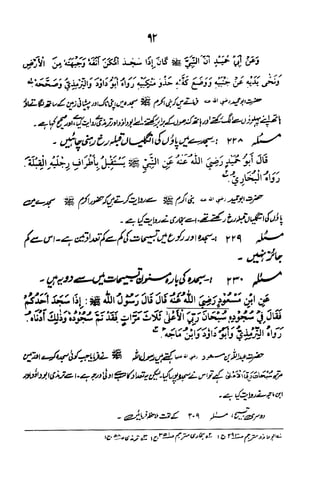 ۹۲
وَعَنْ أَبِي حُمَيْدٍ أَنَّ النَّبِيَّ ﷺ كَانَ إِذَا سَجَدَ أَمْكَنَ أَنْفَهُ وَجَبْهَتَهُ مِنَ الْأَرْضِ
وَنَحَّى يَدَيْهِ عَنْ جَنْبَيْهِ وَوَضَعَ كَفَّيْهِ حَذْوَ مَنْكِبَيْهِ رَوَاهُ أَبُو دَاوُدَ وَالتِّرْمِذِيُّ وَصَحَّحَهُ
حضرت ابو حمید رضی اللہ عنہ فرماتے ہیں کہ نبی اکرم ﷺ سجدہ میں اپنی ناک اور پیشانی زمین کے ساتھ لگاتے اور
مسئلہ ۲۲۸ :- سجدے میں پاؤں کی انگلیاں قبلہ رخ رہنی چاہئیں ۔
قَالَ أَبُو حُمَيْدٍ رَضِيَ اللهُ عَنْهُ عَنِ النَّبِيِّ ﷺ يَسْتَقْبِلُ بِأَطْرَافِ رِجْلَيْهِ الْقِبْلَةَ
رَوَاهُ الْبُخَارِيُّ
حضرت ابو حمید رضی اللہ عنہ نبی اکرم ﷺ سے روایت کرتے ہیں کہ حضور اکرم ﷺ سجدہ میں اپنے
پاؤں کی انگلیاں قبلہ رخ رکھتے تھے۔ اسے بخاری نے روایت کیا ہے ۔
مسئلہ ۲۲۹ :- سجدہ اور رکوع میں تسبیحات کی کم سے کم تعداد تین ہے۔ اس سے کم
جائز نہیں ۔
مسئلہ ۲۳۰ :- سجدہ کی بارہ مسنون تسبیحات میں سے دو یہ ہیں ۔
عَنِ ابْنِ مَسْعُودٍ رَضِيَ اللهُ عَنْهُ قَالَ قَالَ رَسُولُ اللهِ ﷺ : إِذَا سَجَدَ أَحَدُكُمْ
فَقَالَ فِي سُجُودِهِ سُبْحَانَ رَبِّيَ الْأَعْلَى ثَلَاثَ مَرَّاتٍ فَقَدْ تَمَّ سُجُودُهُ وَذٰلِكَ أَدْنَاهُ
رَوَاهُ التِّرْمِذِيُّ وَأَبُو دَاوُدَ وَابْنُ مَاجَهْ
حضرت عبداللہ بن مسعود رضی اللہ عنہ کہتے ہیں رسول اللہ ﷺ نے فرمایا جب کوئی سجدہ کرے اور تین
ابن ماجہ نے روایت کیا ہے ۔
دوسری تسبیح مسئلہ ۲۰۹ کے تحت ملاحظہ فرمائیں ۔